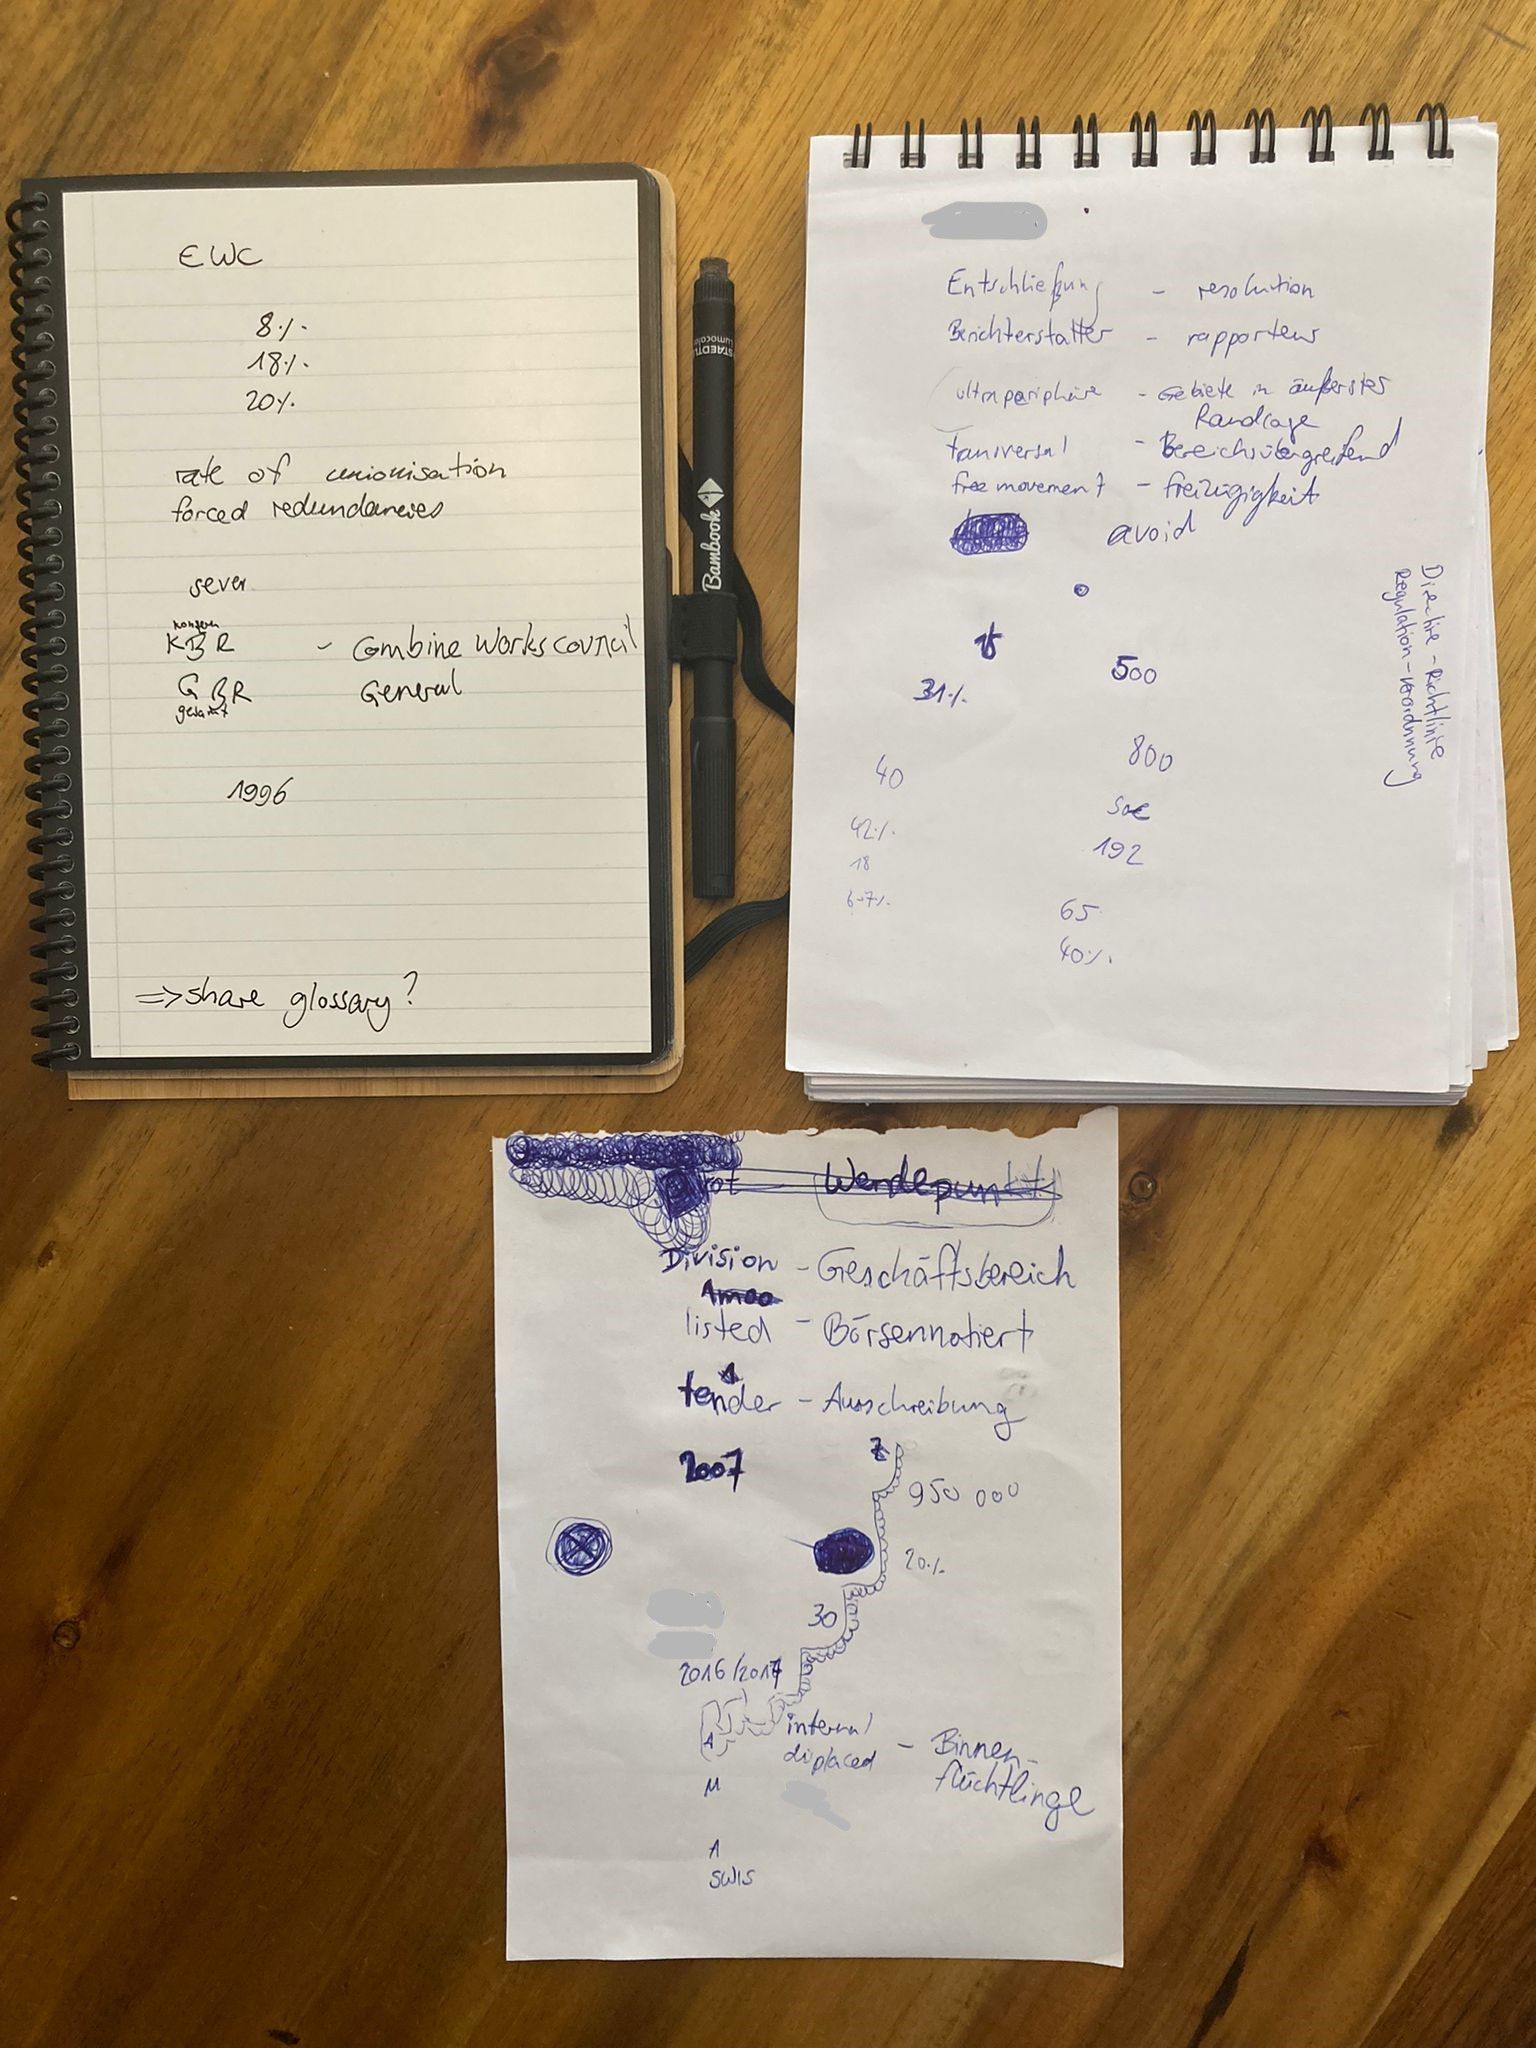 EWC
8%
18%
20%
rate of unionisation
forced redundancies
sever
Konzern
KBR - Combine Works council
GBR General
gesamt
1996
=> share glossary?
STAEDTLER
Lumocolor
Bambook
Entschließung - resolution
Berichterstatter - rapporteur
ultraperiphäre - Gebiete in äußerster
Randlage
tranversal - Bereichsübergreifend
free movement - freizügigkeit
avoid
Directive - Richtlinie
Regulation - Verordnung
500
31%
800
40
42%
192
18
6-7%
65
40%
rot Wendepunkt
Division - Geschäftsbereich
listed - Börsennotiert
tender - Ausschreibung
2007
950 000
20%
30
2016/2017
internal
displaced - Binnen-
flüchtlinge
A
M
A
SWIS